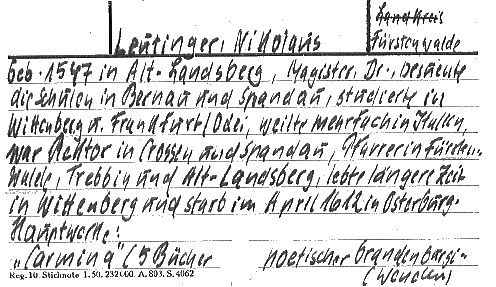 Landkreis
Leutinger, Nikolaus Fürstenwalde
geb. 1547 in Alt-Landsberg, Magister, Dr., besuchte
die Schulen in Bernau und Spandau, studierte in
Wittenberg u. Frankfurt/Oder, weilte mehrfach in Italien,
war Rektor in Crossen und Spandau, Pfarrer in Fürsten-
walde, Trebbin und Alt-Landsberg, lebte längere Zeit
in Wittenberg und starb im April 1612 in Osterburg.
Hauptwerke:
"Carmina" (5 Bücher poetischer brandenburgi-
(Wenden)
Reg. 10. Stichnote 1.50. 232000. A. 803. S. 4062